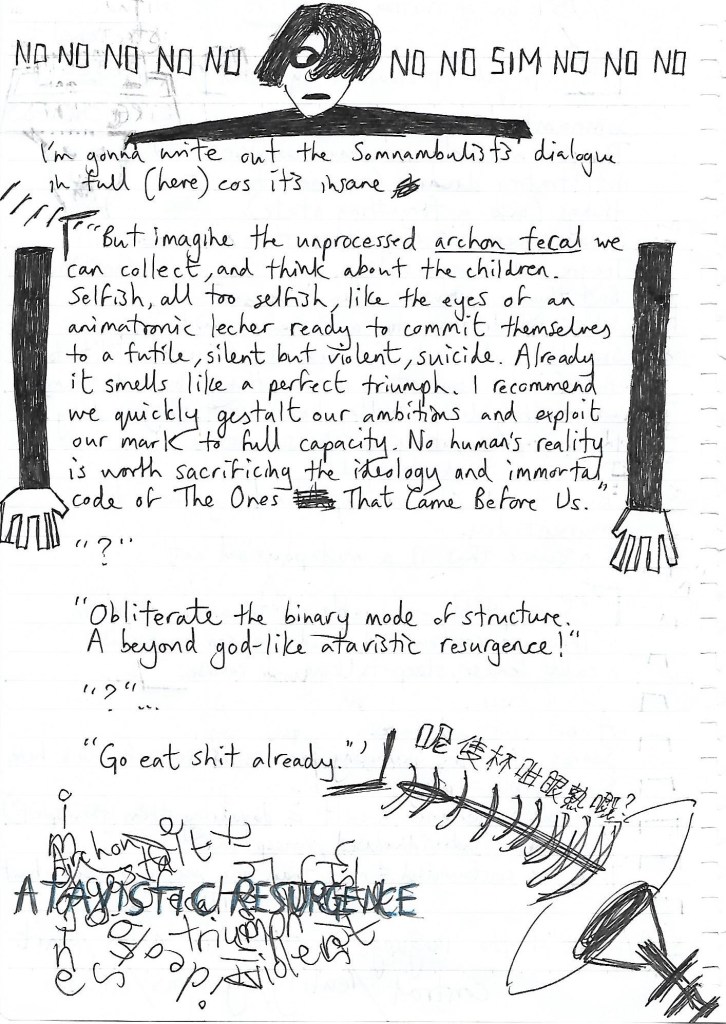 NO NO NO NO NO NO NO SIM NO NO NO
I'm gonna write out the Somnambulists' dialogue
in full (here) cos it's insane
"But imagine the unprocessed archon fecal we
can collect, and think about the children.
Selfish, all too selfish, like the eyes of an
animatronic lecher ready to commit themselves
to a futile, silent but violent, suicide. Already
it smells like a perfect triumph. I recommend
we quickly gestalt our ambitions and exploit
our mark to full capacity. No human's reality
is worth sacrificing the ideology and immortal
code of The Ones That Came Before Us."
"?"
"Obliterate the binary mode of structure.
A beyond god-like atavistic resurgence!"
"?"...
"Go eat shit already."'
呢隻杯咁眼熟嘅?
Archon
gestalt
fecal
ATAVISTIC RESURGENCE
triumph
violent